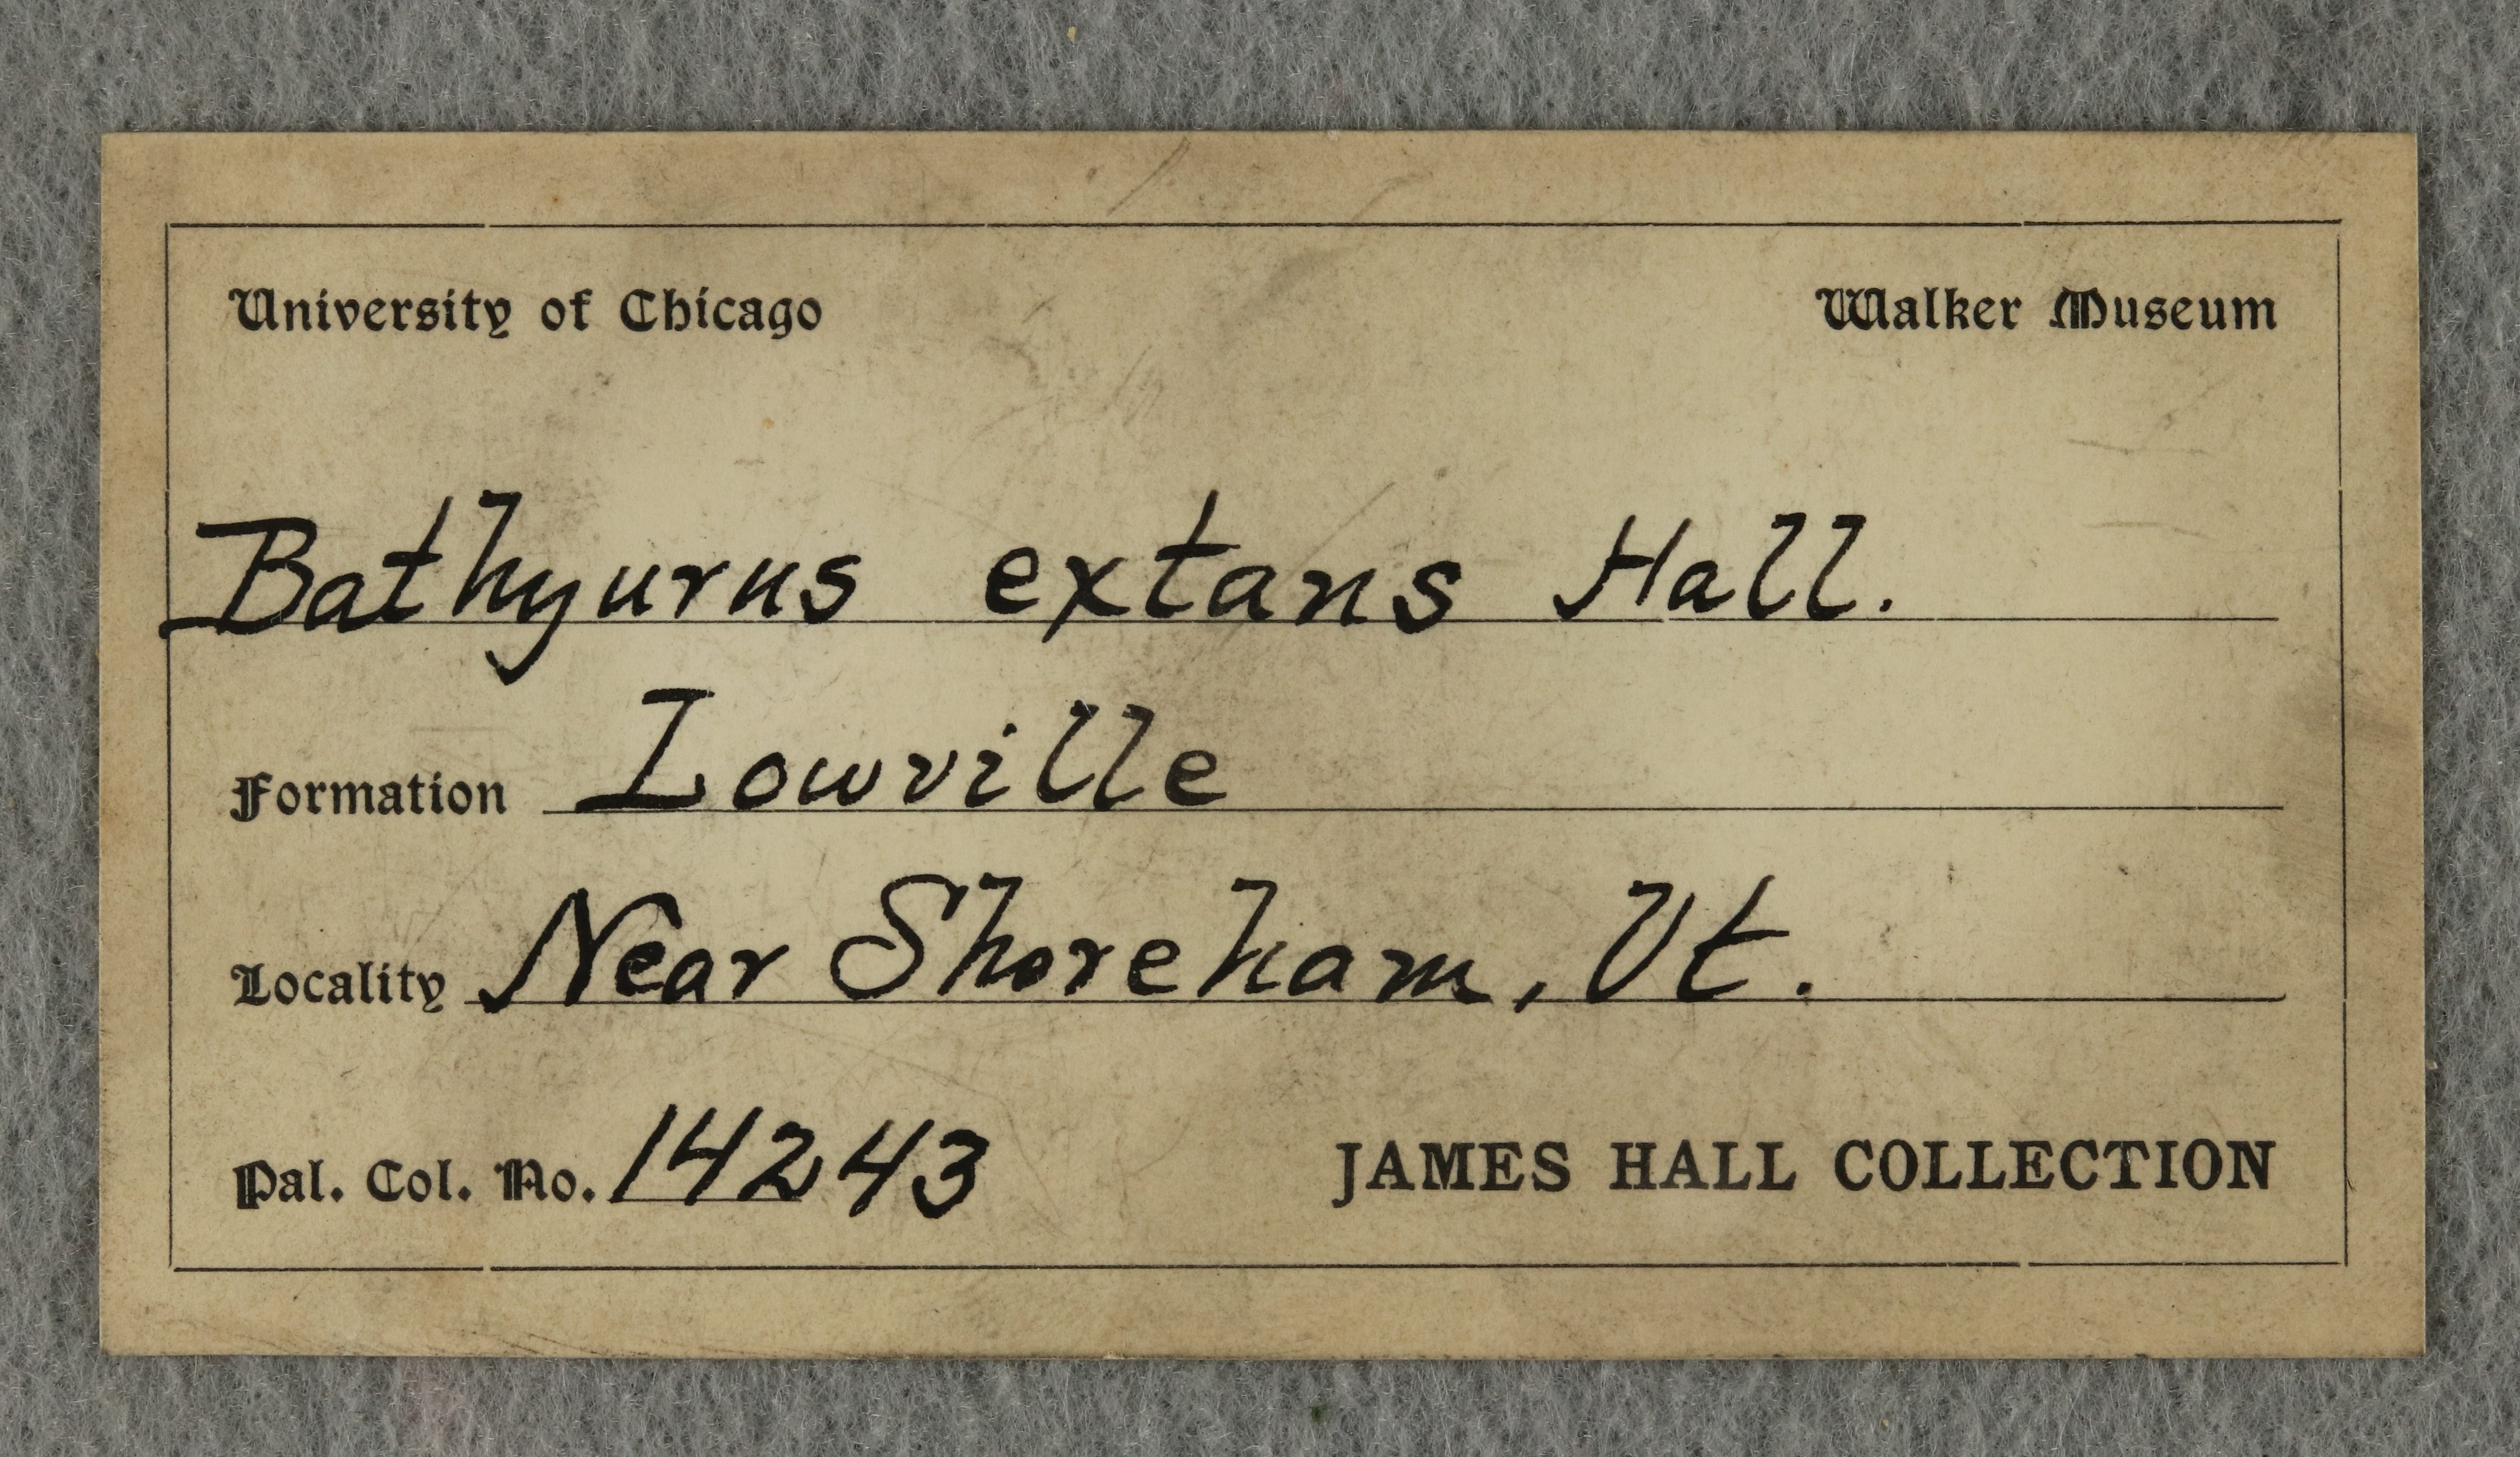 University of Chicago Walker Museum
Bathyurus extans Hall.
Formation Lowville
Locality Near Shoreham, Vt.
Pal. Col. No. 14243 JAMES HALL COLLECTION